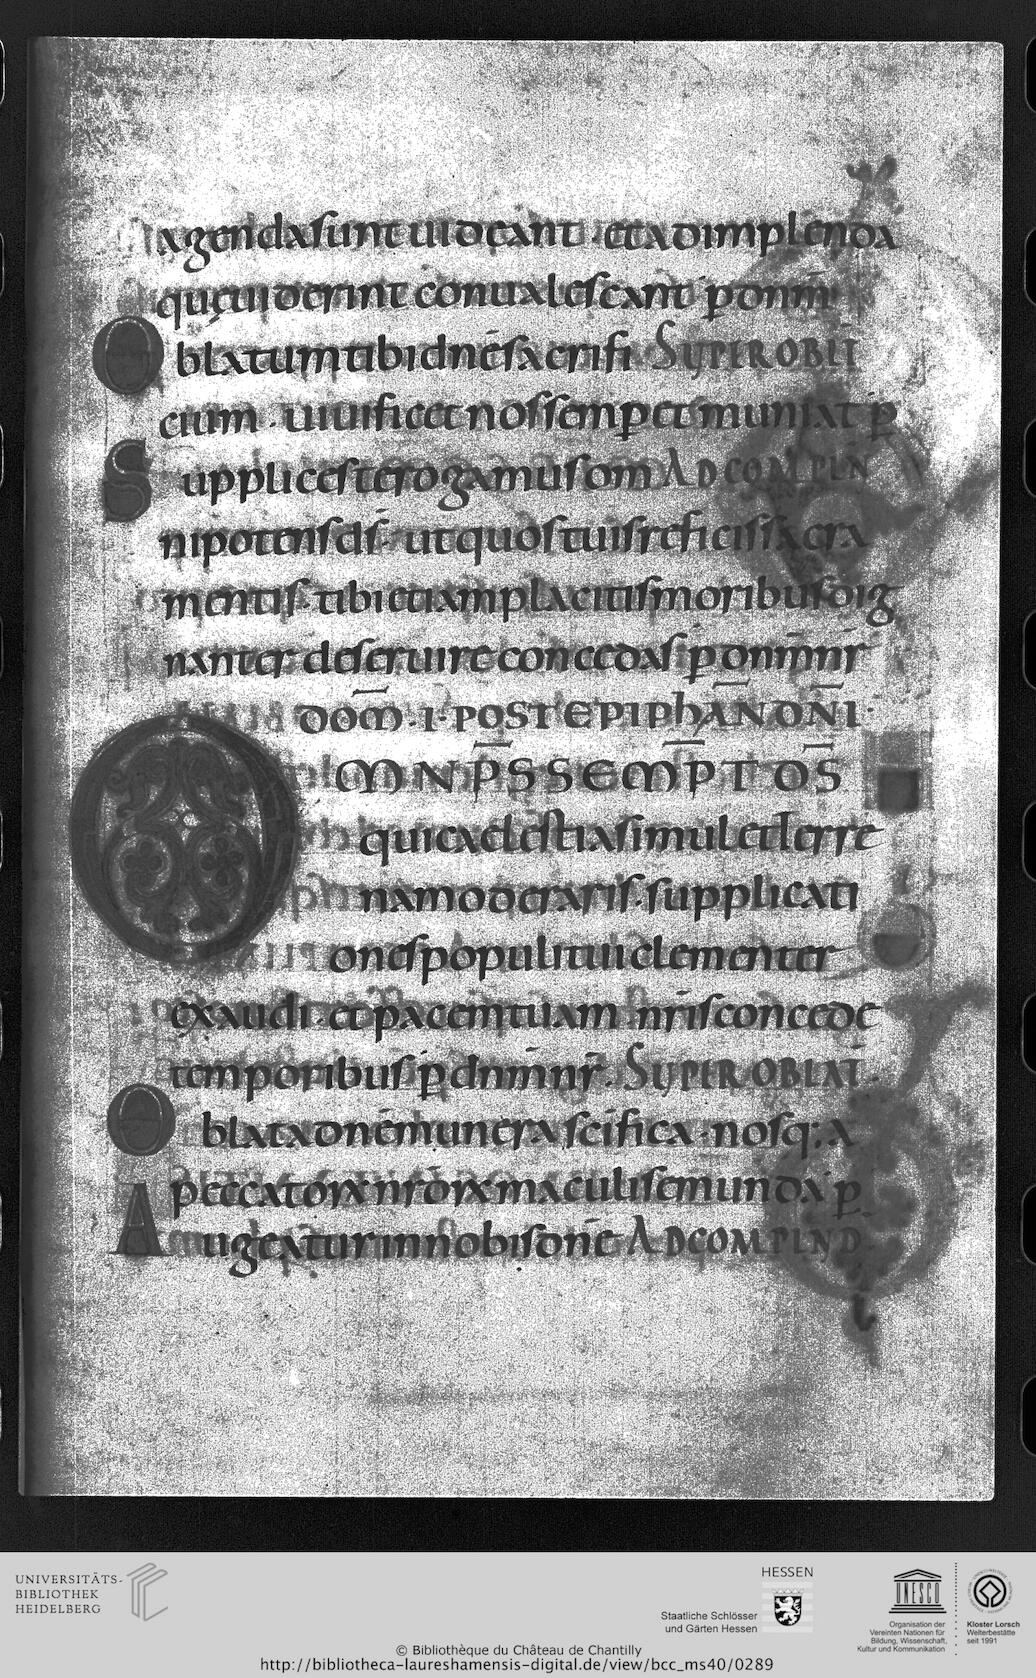 agenda sunt uideant · et ad implenda
quę uiderint conualescant p̄ dnm̄
Oblatum tibi dnē sacrifi SUPER OBLT̄
cium · uiuificet nos semp et muniat p̄
Supplices te rogamus om AD COMPLN
nipotens ds̄ · ut quos tuis reficis sacra
mentis · tibi etiam placitis moribus dig
nanter deseruire concedas p̄ dnm̄ nr̄
DOM̄ · I · POST EPIPHAN̄ DN̄I ·
OMNP̄S SEMP̄T DS̄
qui caelestia simul et terre
na moderaris · supplicati
ones populi tui clementer
exaudi · et pacem tuam nr̄is concede
temporibus p̄ dnm̄ nr̄ · SUPER OBLAT̄ ·
Oblata dnē munera sc̄ifica · nosq; a
peccatorx nr̄orx maculis emunda p̄
Augeatur in nobis dnē AD COMPLND
UNIVERSITÄTS-
BIBLIOTHEK
HEIDELBERG
HESSEN
Staatliche Schlösser
und Gärten Hessen
UNESCO
Organisation der
Vereinten Nationen für
Bildung, Wissenschaft,
Kultur und Kommunikation
Kloster Lorsch
Welterbestätte
seit 1991
© Bibliothèque du Château de Chantilly
http://bibliotheca-laureshamensis-digital.de/view/bcc_ms40/0289